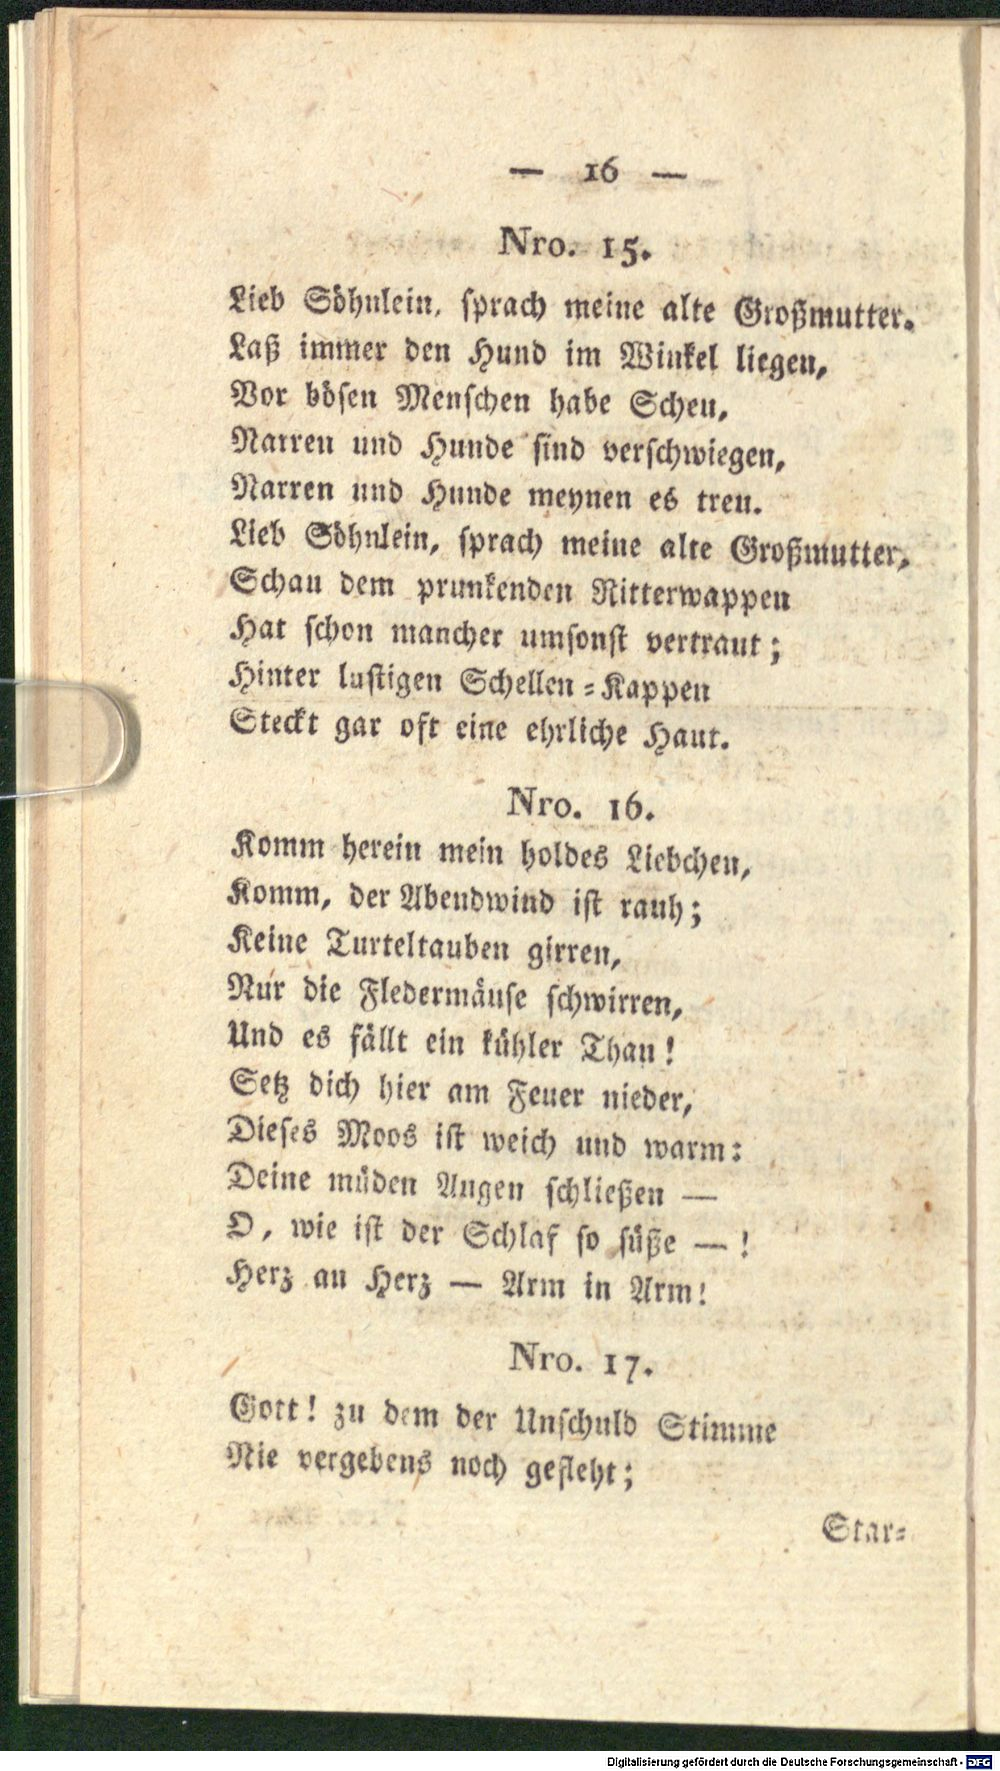 — 16 —
Nro. 15.
Lieb Söhnlein, sprach meine alte Großmutter.
Laß immer den Hund im Winkel liegen,
Vor bösen Menschen habe Scheu,
Narren und Hunde sind verschwiegen,
Narren und Hunde meynen es treu.
Lieb Söhnlein, sprach meine alte Großmutter,
Schau dem prunkenden Ritterwappen
Hat schon mancher umsonst vertraut;
Hinter lustigen Schellen-Kappen
Steckt gar oft eine ehrliche Haut.
Nro. 16.
Komm herein mein holdes Liebchen,
Komm, der Abendwind ist rauh;
Keine Turteltauben girren,
Nur die Fledermäuse schwirren,
Und es fällt ein kühler Thau!
Setz dich hier am Feuer nieder,
Dieses Moos ist weich und warm:
Deine müden Augen schließen —
O, wie ist der Schlaf so süße —!
Herz an Herz — Arm in Arm!
Nro. 17.
Gott! zu dem der Unschuld Stimme
Nie vergebens noch gefleht;
Star-
Digitalisierung gefördert durch die Deutsche Forschungsgemeinschaft - DFG